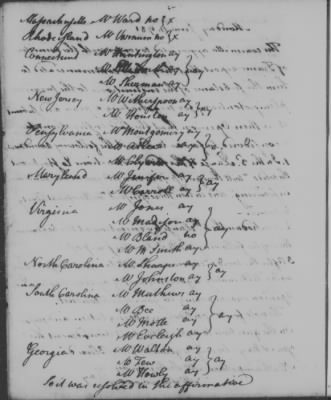 Massachusetts Mr Ward no } x
Rhode Island Mr Varnum no } x
Connecticut Mr Huntington ay
Mr ay } ay
Mr Sherman ay
New Jersey Mr Witherspoon ay } ay
Mr Houston ay
Pennsylvania Mr Montgomery ay
Mr Atlee
Mr Clymer
Maryland Mr Jenifer ay } ay
Mr Carroll ay
Virginia Mr Jones ay
Mr Madison ay
Mr Bland no } ay
Mr M Smith ay
North Carolina Mr Sharpe ay } ay
Mr Johnston ay
South Carolina Mr Mathews ay
Mr Bee ay
Mr Motte ay } ay
Mr Eveleigh ay
Georgia Mr Walton ay
Mr Few ay } ay
Mr Howly ay
So it was resolved in the affirmative